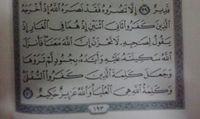 قَدِيرٌ ﴿٣٩﴾ إِلَّا تَنصُرُوهُ فَقَدْ نَصَرَهُ اللَّهُ إِذْ أَخْرَجَهُ
الَّذِينَ كَفَرُوا ثَانِيَ اثْنَيْنِ إِذْ هُمَا فِي الْغَارِ إِذْ
يَقُولُ لِصَاحِبِهِ لَا تَحْزَنْ إِنَّ اللَّهَ مَعَنَا فَأَنزَلَ
اللَّهُ سَكِينَتَهُ عَلَيْهِ وَأَيَّدَهُ بِجُنُودٍ لَّمْ تَرَوْهَا
وَجَعَلَ كَلِمَةَ الَّذِينَ كَفَرُوا السُّفْلَىٰ
وَكَلِمَةُ اللَّهِ هِيَ الْعُلْيَا وَاللَّهُ عَزِيزٌ حَكِيمٌ ﴿٤٠﴾
١٩٣